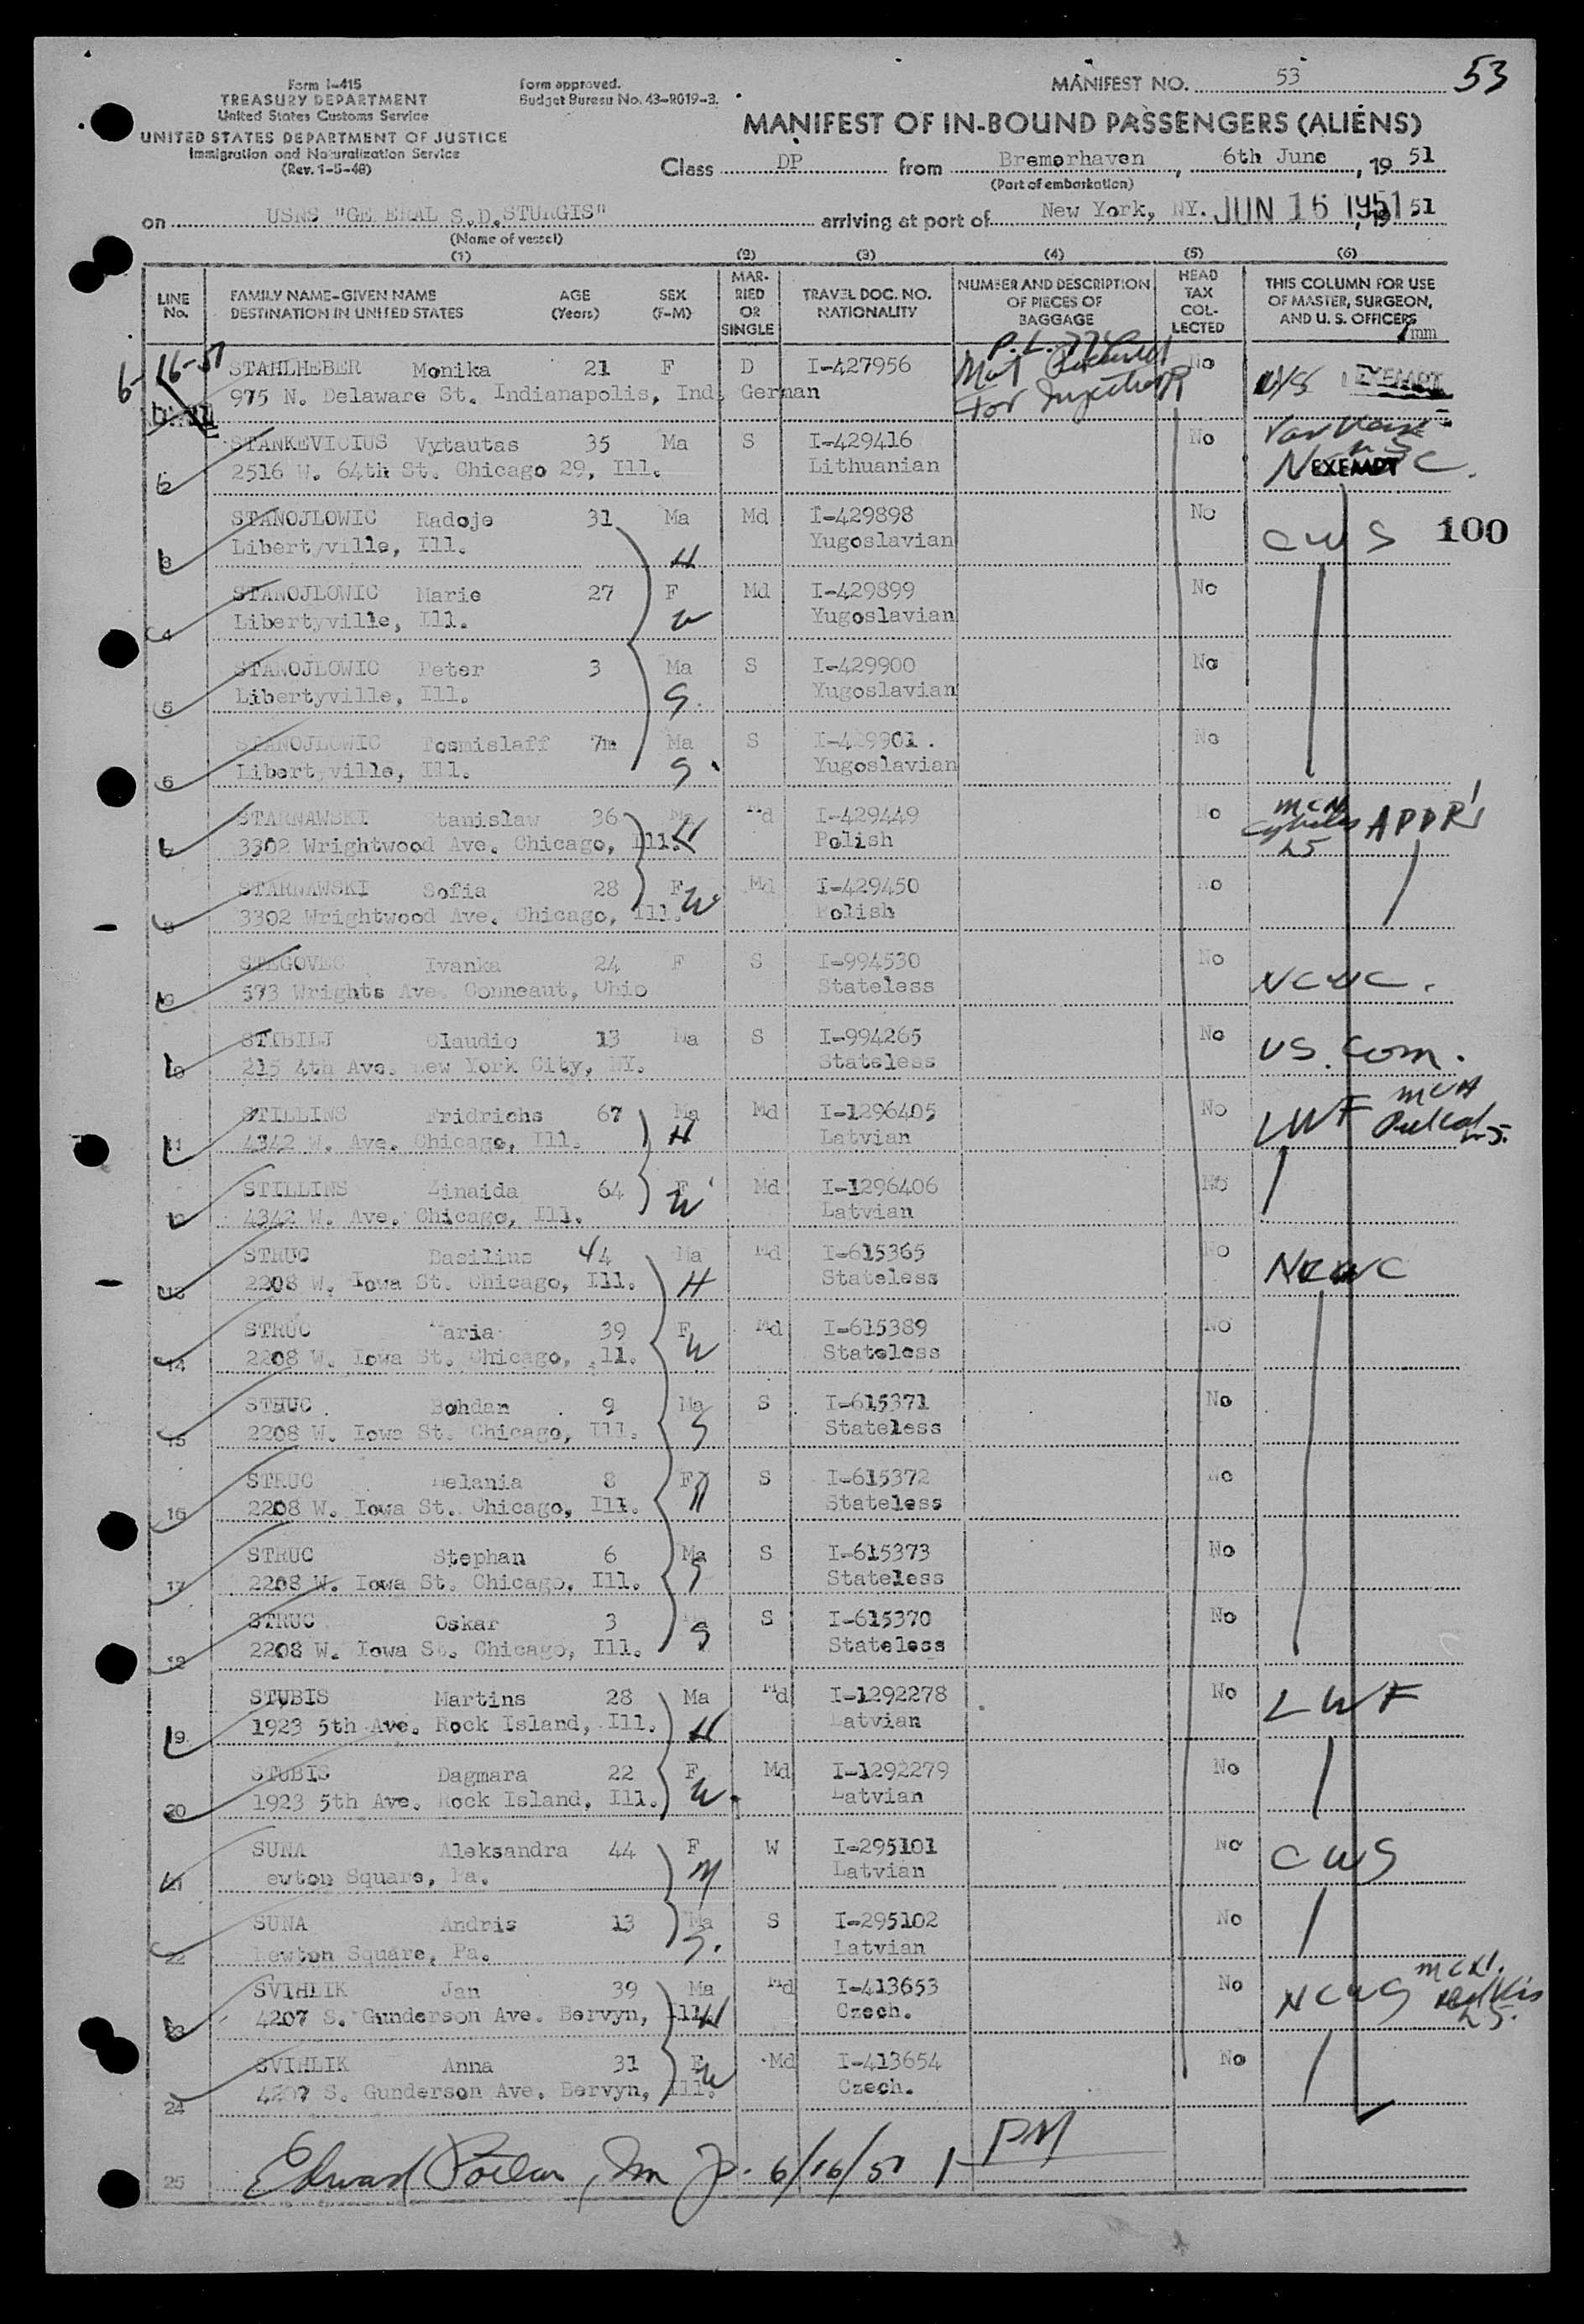 53
Form I-415
TREASURY DEPARTMENT
United States Customs Service
UNITED STATES DEPARTMENT OF JUSTICE
Immigration and Naturalization Service
(Rev. 1-5-48)
Form approved.
Budget Bureau No. 43-R019-3.
MANIFEST NO. 53
MANIFEST OF IN-BOUND PASSENGERS (ALIENS)
Class DP from Bremerhaven, 6th June, 19 51
(Port of embarkation)
on USNS "GENERAL S.D.STURGIS" arriving at port of New York, NY. JUN 16 1951, 19 51
(Name of vessel)
(1) (2) (3) (4) (5) (6)
LINE No. FAMILY NAME-GIVEN NAME DESTINATION IN UNITED STATES AGE (Years) SEX (F-M) MARRIED OR SINGLE TRAVEL DOC. NO. NATIONALITY NUMBER AND DESCRIPTION OF PIECES OF BAGGAGE HEAD TAX COLLECTED THIS COLUMN FOR USE OF MASTER, SURGEON, AND U. S. OFFICERS
6-16-51
STAHLHEBER Monika 21 F D I-427956 No EXEMPT
975 N. Delaware St. Indianapolis, Ind. German
for Inspection
STANKEVICIUS Vytautas 35 Ma S I-429416 No
2516 W. 64th St. Chicago 29, Ill. Lithuanian EXEMPT
STANOJLOWIC Radoje 31 Ma Md I-429898 No
3 Libertyville, Ill. H Yugoslavian CWS 100
STANOJLOWIC Marie 27 F Md I-429899 No
4 Libertyville, Ill. W Yugoslavian
STANOJLOWIC Peter 3 Ma S I-429900 No
5 Libertyville, Ill. S. Yugoslavian
STANOJLOWIC Tosmislaff 7m Ma S I-429901. No
6 Libertyville, Ill. S. Yugoslavian
STARNAWSKI Stanislaw 36 Ma Md I-429449 No APDR
3302 Wrightwood Ave. Chicago, Ill. H Polish
STARNAWSKI Sofia 28 F Md I-429450 No
8 3302 Wrightwood Ave. Chicago, Ill. W Polish
STEGOVEC Ivanka 24 F S I-994530 No
9 573 Wrights Ave. Conneaut, Ohio Stateless NCWC.
STIBILJ Claudio 13 Ma S I-994265 No
215 4th Ave. New York City, NY. Stateless US. Com.
STILLINS Fridrichs 67 Ma Md I-1296405 No LWF
11 4342 W. Ave. Chicago, Ill. H Latvian
STILLINS Zinaida 64 F Md I-1296406 No
4342 W. Ave. Chicago, Ill. W Latvian
STRUC Basilius 44 Ma Md I-615365 No
13 2208 W. Iowa St. Chicago, Ill. H Stateless NCWC
STRUC Maria 39 F Md I-615389 No
14 2208 W. Iowa St. Chicago, Ill. W Stateless
STRUC Bohdan 9 Ma S I-615371 No
15 2208 W. Iowa St. Chicago, Ill. S Stateless
STRUC Melania 8 F S I-615372 No
16 2208 W. Iowa St. Chicago, Ill. Stateless
STRUC Stephan 6 Ma S I-615373 No
17 2208 W. Iowa St. Chicago, Ill. S Stateless
STRUC Oskar 3 S I-615370 No
18 2208 W. Iowa St. Chicago, Ill. S Stateless
STUBIS Martins 28 Ma Md I-1292278 No LWF
19 1923 5th Ave. Rock Island, Ill. H Latvian
STUBIS Dagmara 22 F Md I-1292279 No
20 1923 5th Ave. Rock Island, Ill. W. Latvian
SUNA Aleksandra 44 F W I-295101 No CWS
21 ewton Square, Pa. M Latvian
SUNA Andris 13 Ma S I-295102 No
22 Newton Square, Pa. S. Latvian
SVIHLIK Jan 39 Ma Md I-413653 No
23 4207 S. Gunderson Ave. Bervyn, Ill. H Czech.
SVIHLIK Anna 31 F Md I-413654 No
24 4207 S. Gunderson Ave. Bervyn, Ill. W Czech.
25 Edward 6/16/51 PM